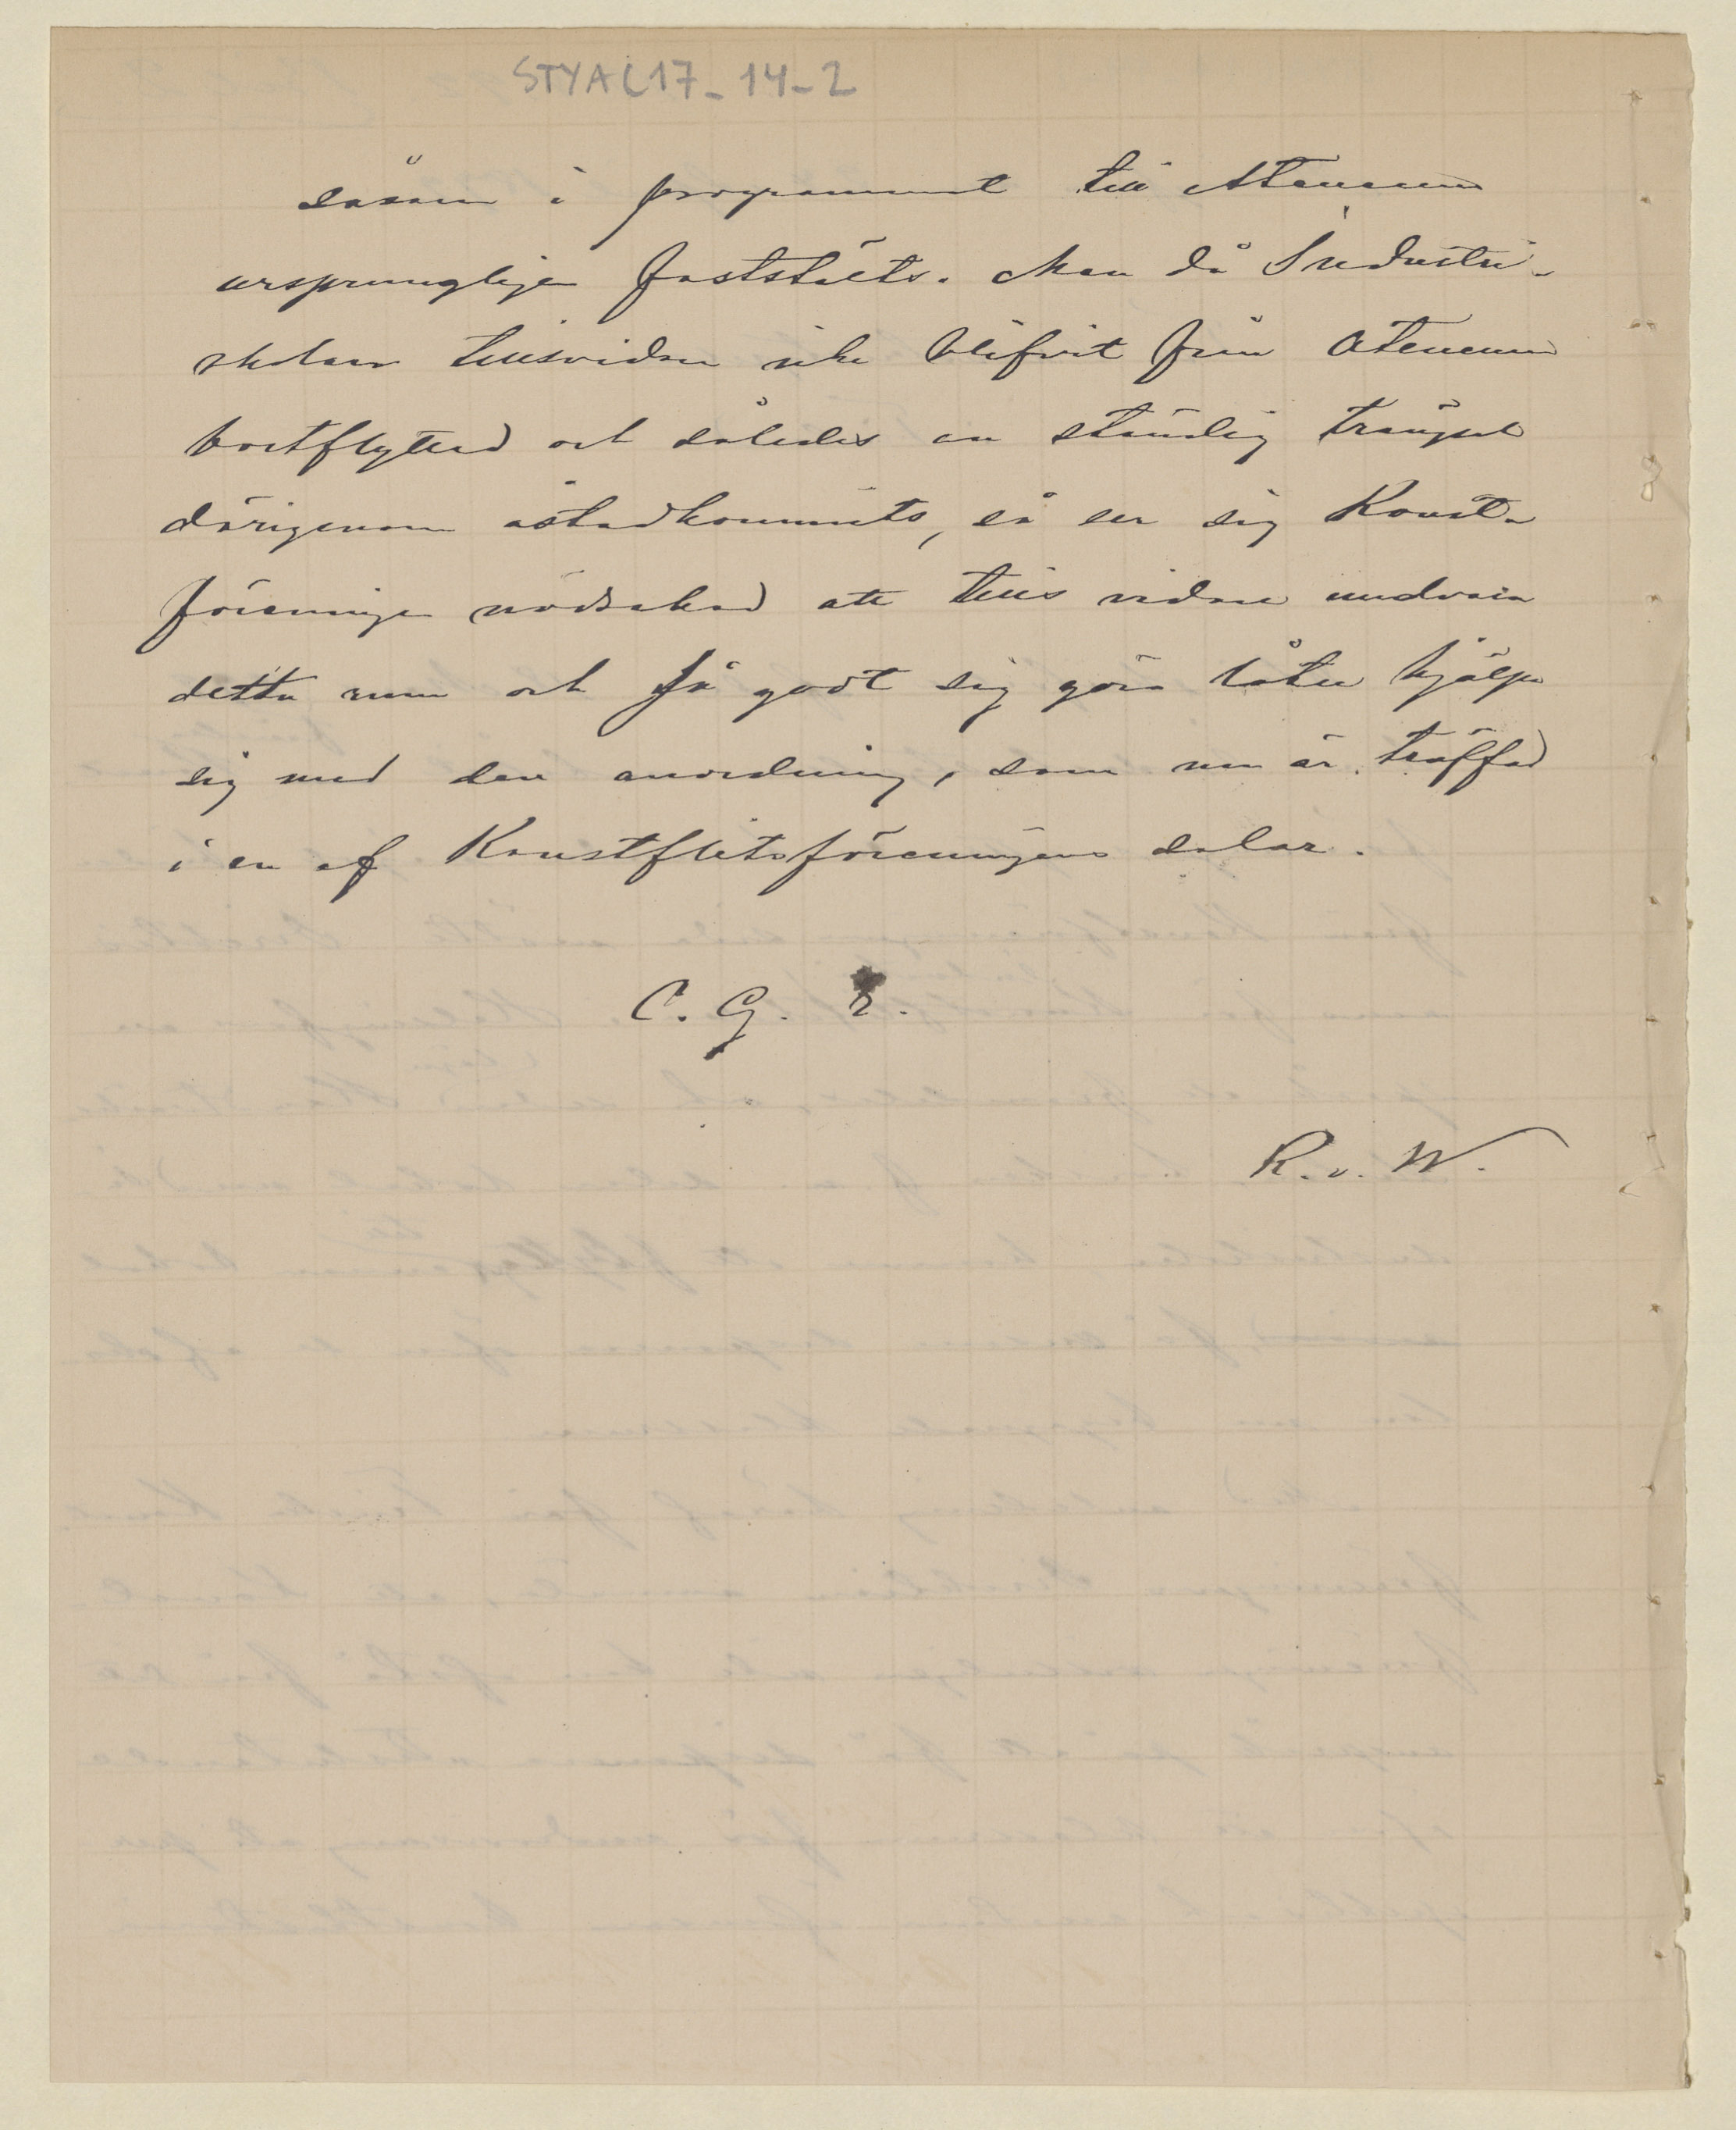 STYA C17-14-2
såsom i programmet till Ateneum
ursprungligen fastställts. Men då Industri-
skolan tillsvidare icke blifvit från Ateneum
bortflyttad och således en ständig trängsel
därigenom åstadkommits, så ser sig Konst-
föreningen nödsakad att tills vidare undvara
detta rum och så godt sig göra låter hjälpa
sig med den anordning, som nu är träffad
i en af Konstflitsföreningens salar.
C. G. E.
R. v. W.